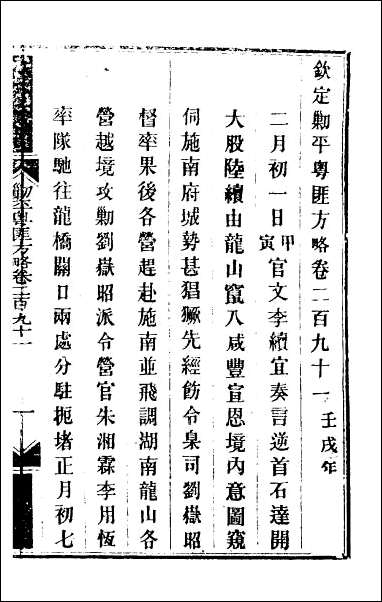 欽定勦平粵匪方略卷二百九十一壬戌年
二月初一日甲寅官文李續宜奏言逆首石達開
大股陸續由龍山竄入咸豐宣恩境內意圖窺
伺施南府城勢甚猖獗先經飭令臬司劉嶽昭
督率果後各營趕赴施南並飛調湖南龍山各
營越境攻勦劉嶽昭派令營官朱湘霖李用恆
率隊馳往龍橋關口兩處分駐扼堵正月初七
勦平粵匪方略卷二百九十一
一